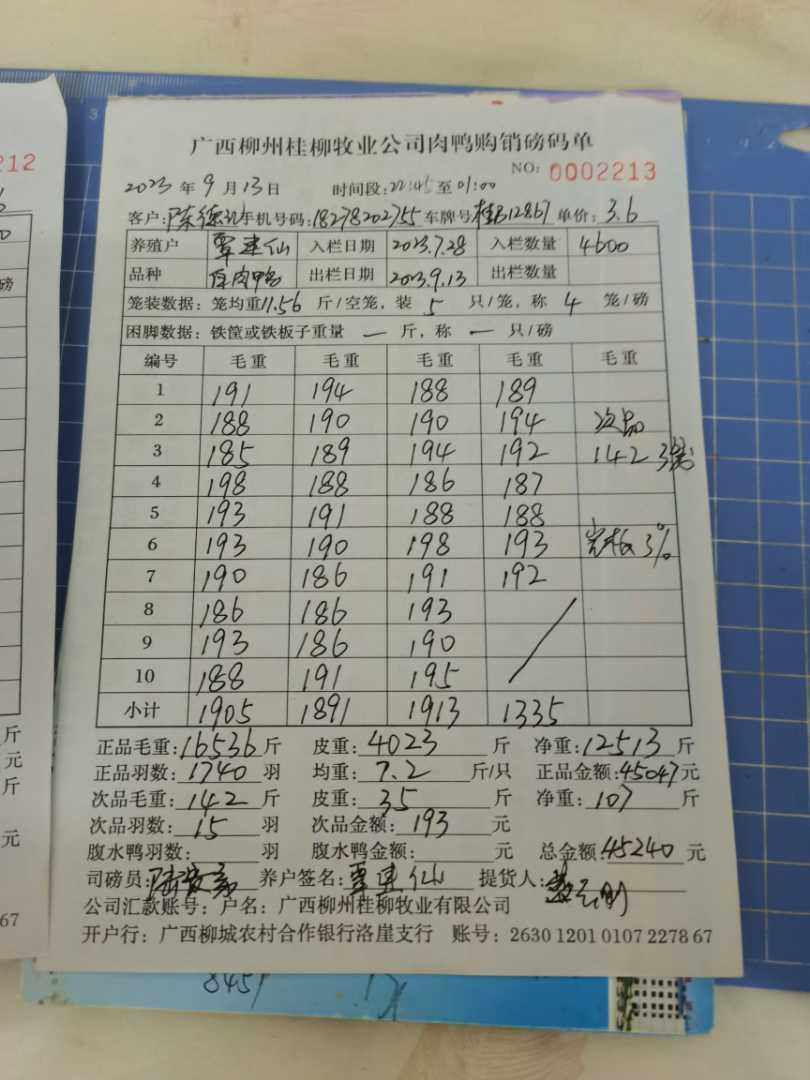 212
广西柳州桂柳牧业公司肉鸭购销磅码单
NO: 0002213
2023 年 9 月 13 日 时间段: 22:45 至 01:00
客户: 陈德 手机号码: 18278202755 车牌号 桂B12867 单价: 3.6
养殖户 覃建仙 入栏日期 2023.7.28 入栏数量 4600
品种 肉鸭 出栏日期 2023.9.13 出栏数量
笼装数据: 笼均重 11.56 斤/空笼, 装 5 只/笼, 称 4 笼/磅
困脚数据: 铁筐或铁板子重量 — 斤, 称 — 只/磅
编号 毛重 毛重 毛重 毛重 毛重
1 191 194 188 189
2 188 190 190 194 次品
3 185 189 194 192 142 3笼
4 198 188 186 187
5 193 191 188 188
6 193 190 198 193 3%
7 190 186 191 192
8 186 186 193
9 193 186 190
10 188 191 195
小计 1905 1891 1913 1335
正品毛重: 16536 斤 皮重: 4023 斤 净重: 12513 斤
正品羽数: 1740 羽 均重: 7.2 斤/只 正品金额: 45047 元
次品毛重: 142 斤 皮重: 35 斤 净重: 107 斤
次品羽数: 15 羽 次品金额: 193 元
腹水鸭羽数: 羽 腹水鸭金额: 元 总金额: 45240 元
司磅员: 养户签名: 覃建仙 提货人:
公司汇款账号: 户名: 广西柳州桂柳牧业有限公司
开户行: 广西柳城农村合作银行洛崖支行 账号: 2630 1201 0107 2278 67
斤
元
斤
元
67
8451